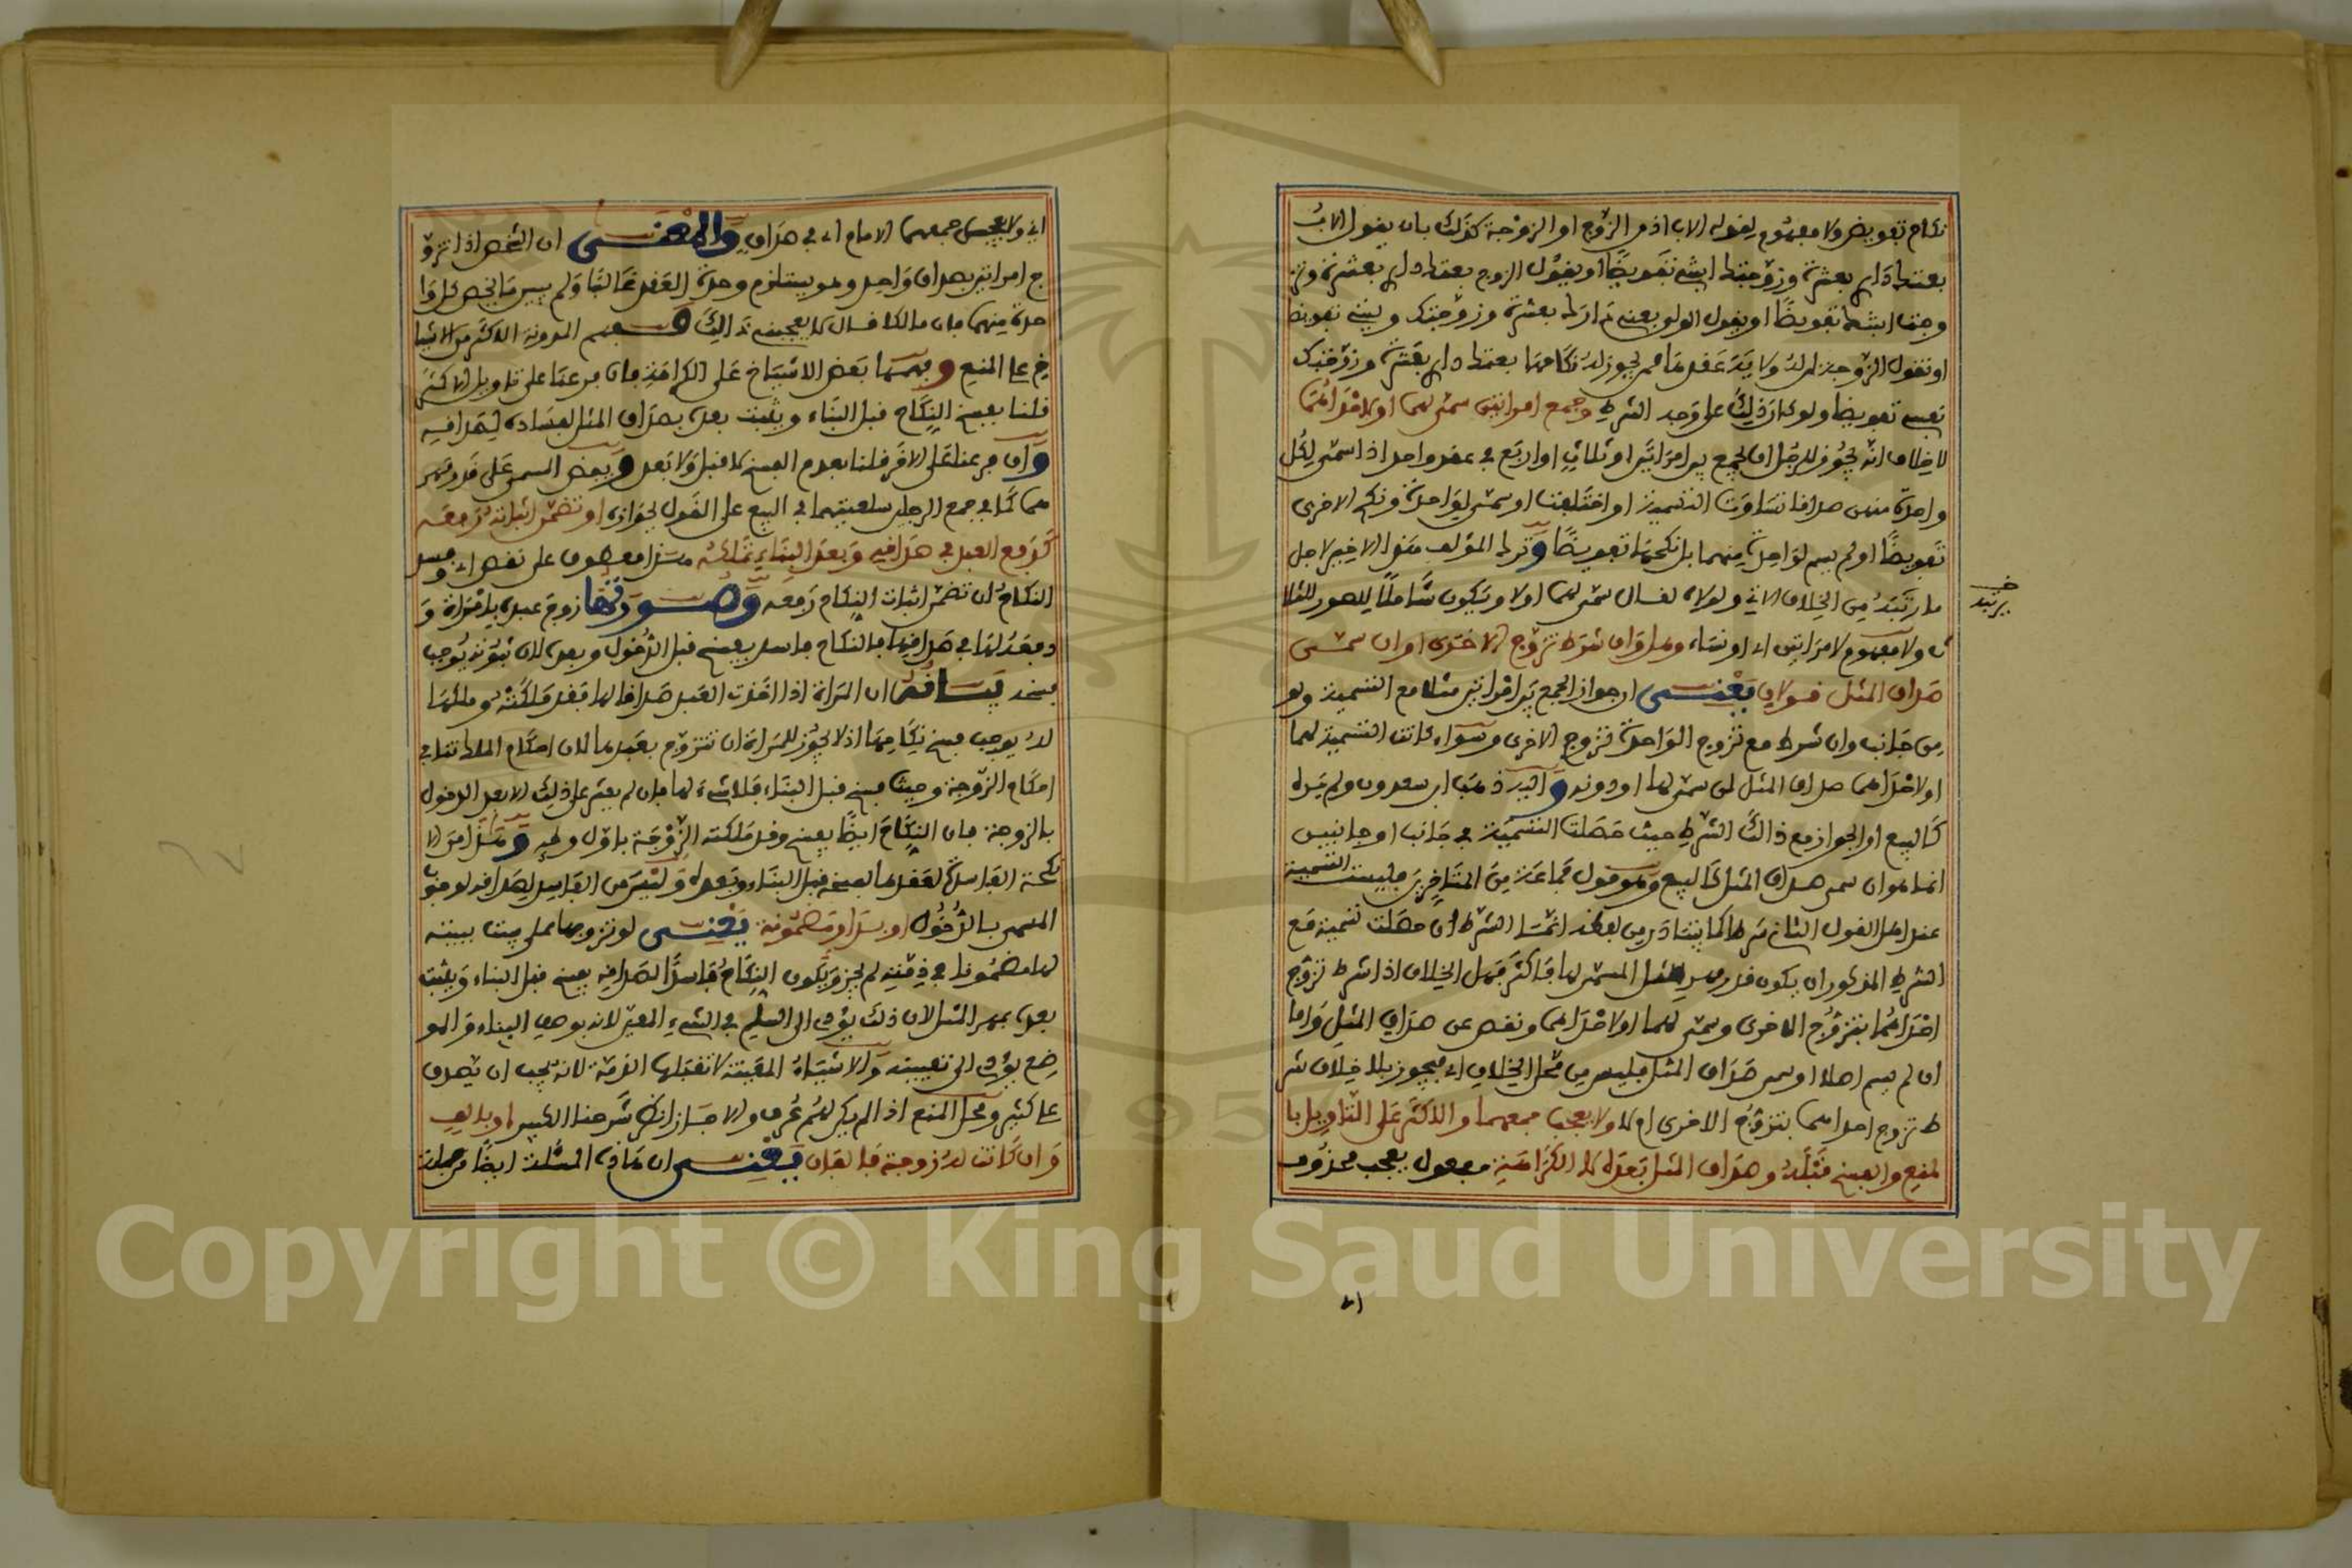 نكاح تفويض ولا مفهوم لقوله الاب اذ الزوج او الزوجة كذلك بان يقول الاب
بعتك داري بعشرة وزوجتك ابنتي تفويضا او يقول الزوج بعتك داري بعشرة وتز
وجت ابنتك تفويضا او يقول الولي بعني دارك بعشرة وزوجتك وليتي تفويضا
او تقول الزوجة لمن لا يقدر عقدها ممن يجوز له نكاحها بعتك داري بعشرة وزوجتك
نفسي تفويضا ولو كان ذلك على وجه الشرط وجمع امراتين سمى لهما او لاحداهما
لا خلاف انه يجوز للرجل ان يجمع بين امراتين او ثلاث او اربع في عقد واحد اذا سمى لكل
واحدة منهن صداقا تساوت التسمية او اختلفت او سمى لواحدة ونكح الاخرى
تفويضا او لم يسم لواحدة منهما بل نكحهما تفويضا وترك المؤلف هذا الاخير لاجل
ما رتبه من الخلاف الاتي ولولاه لقال سمى لهما او لا ويكون شاملا للصور الثلا
ث ولا مفهوم لامراتين اي او نساء وهل وان شرط تزوج الاخرى او ان سمى
صداق المثل قولان يعني ان جواز الجمع بين امراتين مثلا مع التسمية وهو
من جانب وان شرط مع تزوج الواحدة تزوج الاخرى وسواء كانت التسمية لهما
او لاحداهما صداق المثل لمن سمى لها او دونه واليه ذهب ابن سعدون ولم يره
كالبيع او الجواز مع ذلك الشرط حيث حصلت التسمية في جانب او جانبين
انما هو ان سمى صداق المثل كالبيع وهو قول جماعة من المتاخرين فليست التسمية
عند اهل القول الثاني شرطا كما يتبادر من لفظه انما الشرط ان حصلت تسمية مع
الشرط المذكور ان يكون قدر مهر المثل المسمى لها فاكثر فمحل الخلاف اذا شرط تزوج
احداهما بتزوج الاخرى وسمى لهما او لاحداهما ونقص عن صداق المثل واما
ان لم يسم اصلا او سمى صداق المثل فليس من محل الخلاف اي فيجوز بلا خلاف شر
ط تزوج احداهما بتزوج الاخرى ام لا ولا يعجب جمعهما والاكثر على التاويل با
لمنع والفسخ قبله وصداق المثل بعده لا الكراهة مفعول يعجب محذوف
خـ يرتبه
اي ولا يعجب جمعهما الامام اي في صداق والمعنى ان الشخص اذا تزو
ج امراتين بصداق واحد وهو يستلزم وحدة العقد غالبا ولم يبين ما يخص كل وا
حدة منهما فان مالكا قال لا يعجبني ذلك وفهم المدونة الاكثر من الاشيا
خ على المنع وفهمها بعض الاشياخ على الكراهة فان فرعنا على تاويل الاكثر
قلنا بفسخ النكاح قبل البناء ويثبت بعده بصداق المثل لفساده لصداقه
وان فرعنا على الاقل قلنا بعدم الفسخ لا قبل ولا بعد ويفض المسمى على قدر مهر
هما كما في جمع الرجلين سلعتيهما في البيع على القول بجوازه او تضمن اثباته رفعه
كدفع العبد في صداقه وبعد البناء تملكه هذا معطوف على نقص اي وفسد
النكاح ان تضمن اثبات النكاح رفعه وصورتها زوج عبده بامراة و
دفعه لها في صداقها فالنكاح فاسد يفسخ قبل الدخول وبعده لان ثبوته يوجب
فسخه بيانه ان المراة اذا اخذت العبد صداقا لها فقد ملكته وملكها
له يوجب فسخ نكاحها اذ لا يجوز للمراة ان تتزوج بعبدها لان احكام الملك تنافي
احكام الزوجة وحيث فسخ قبل البناء فلا شيء لها فان لم يعثر على ذلك الا بعد الدخول
بالزوجة فان النكاح ايضا يفسخ وقد ملكته الزوجة باول وطء
نكحة الفاسدة لعقدها الفسخ قبل البناء وبعده وليس من الفاسد لصداقه لوجوب
المسمى بالدخول او بدار مضمونة يعني لو تزوجها على بيت يبنيه
لها مضمونا في ذمته لم يجز ويكون النكاح فاسدا لصداقه يفسخ قبل البناء ويثبت
بعده بمهر المثل لان ذلك يؤدي الى السلم في الشيء المعين لانه يوصف البناء والمو
ضع يؤدي الى تعيينه والاشياء المعينة لا تقبلها الذمة لانه يجب ان يصدق
على كثير ومحل المنع اذا لم يكن لهم عرف والا جاز انظر شرحنا الكبير او بالف
وان كانت له زوجة فالفان يعني ان هذه المسئلة ايضا من جملة